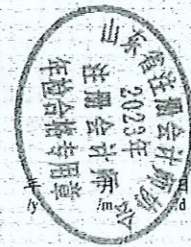 山东省注册会计师协会
2023年
注册会计师
年检合格专用章
年
月
日